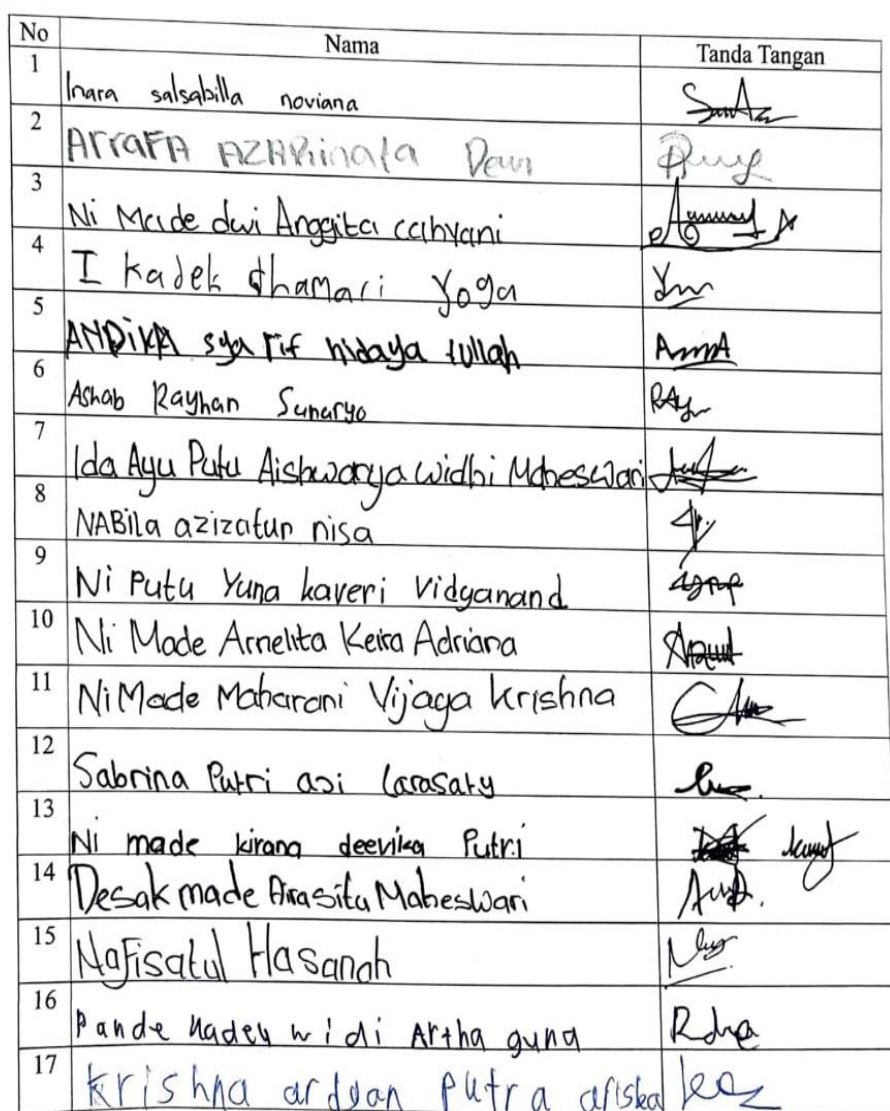 No Nama Tanda Tangan
1 Inara salsabilla noviana
2 ArraFA AZARinata Dewi
3 Ni Made dwi Anggita cahyani
4 I kadek dhamari Yoga
5 ANDiKA sya rif hidaya tullah
6 Ashab Rayhan Sunaryo
7 Ida Ayu Putu Aishwarya Widhi Maheswari
8 NABila azizatun nisa
9 Ni Putu Yuna kaveri Vidyanand
10 Ni Made Arnelita Keira Adriana
11 Ni Made Maharani Vijaya krishna
12 Sabrina Putri asi Larasaty
13 Ni made kirana deevika Putri
14 Desak made Arasita Maheswari
15 Nafisatul Hasanah
16 Pande kadek widi Artha guna
17 krishna ardyan putra ariska